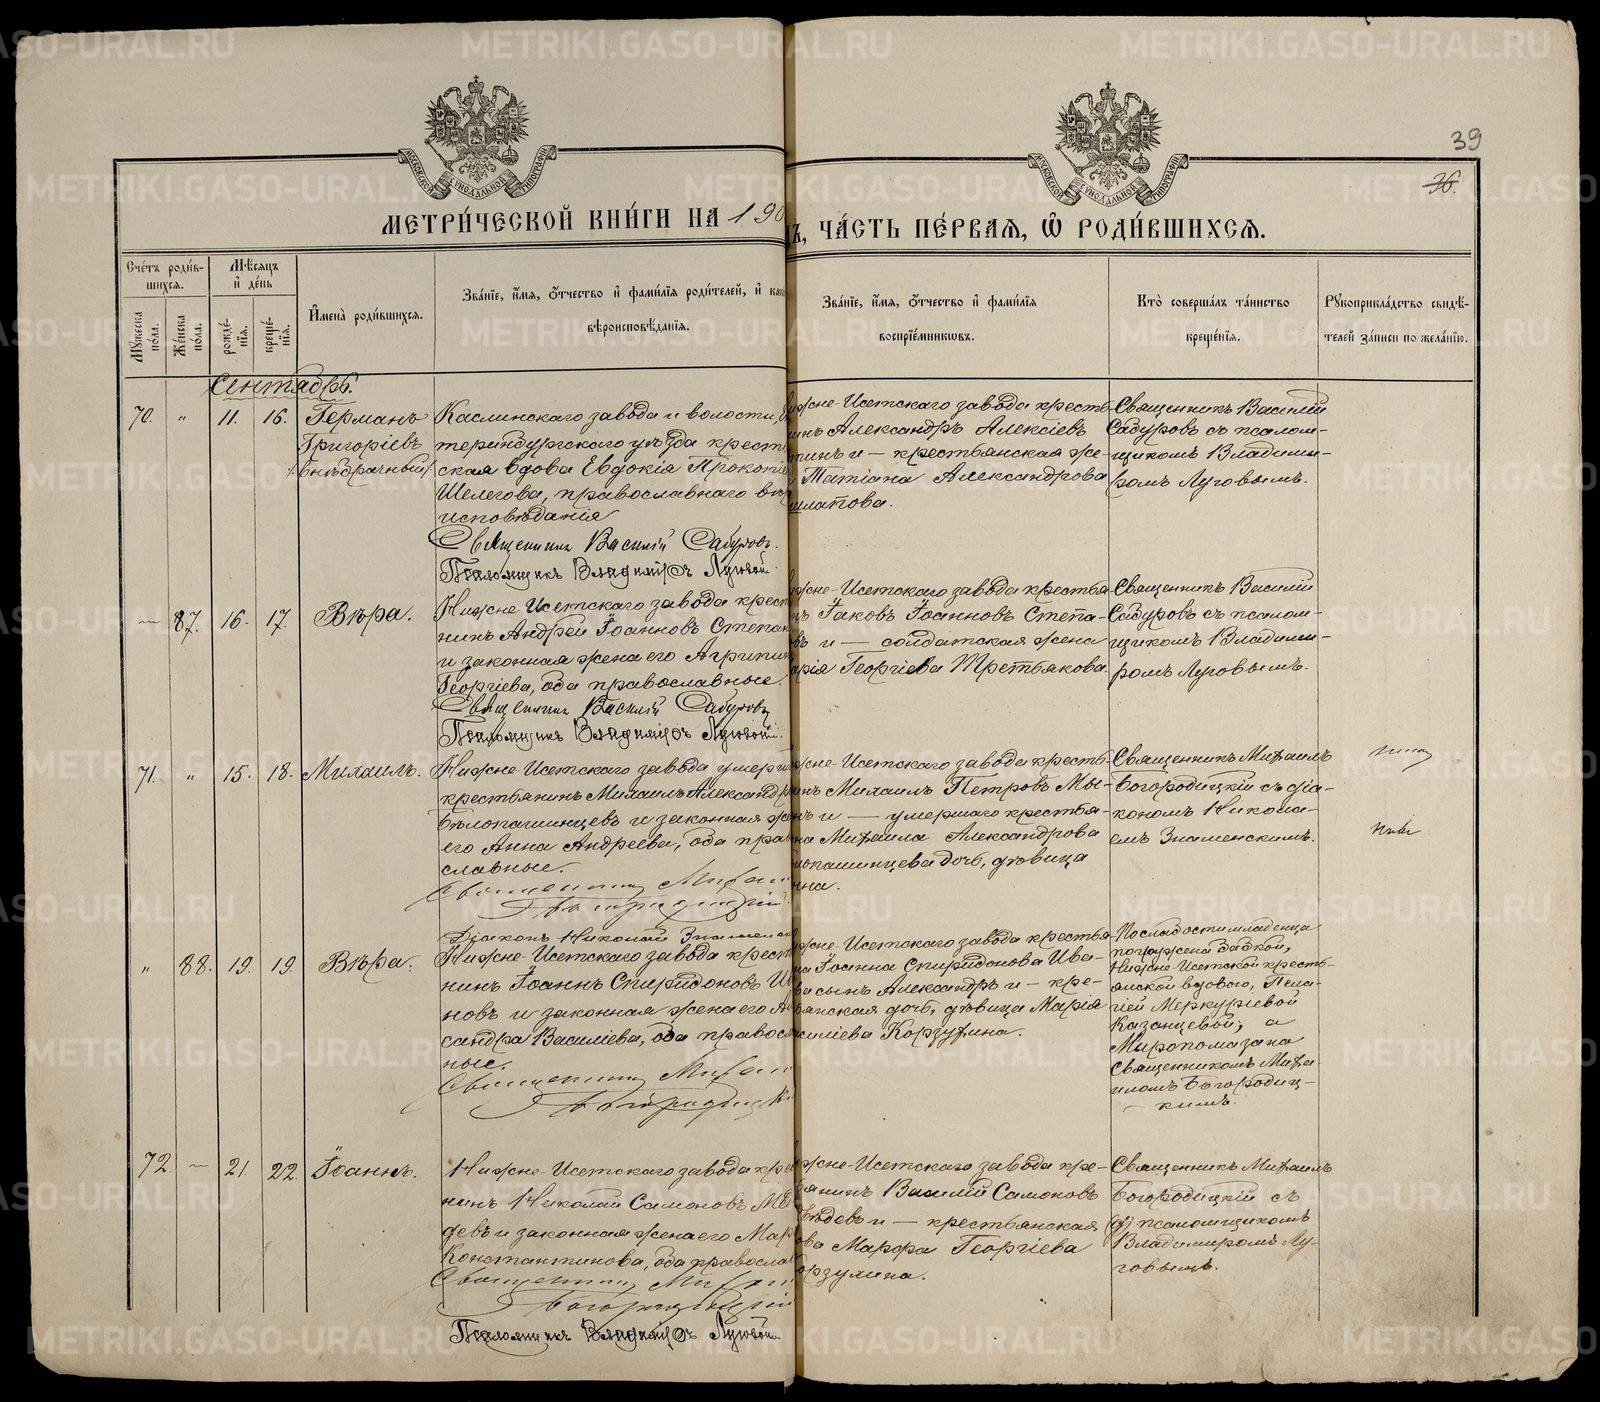 39
36.
МОСКОВСКОЙ СѴНОДАЛЬНОЙ ТИПОГРАФІИ
МОСКОВСКОЙ СѴНОДАЛЬНОЙ ТИПОГРАФІИ
МЕТРИ́ЧЕСКОЙ КНИ́ГИ НА 190
Ъ, ЧА́СТЬ ПЕ́РВАЯ, Ѡ҆ РОДИ́ВШИХСЯ.
Сче́тъ роди́в-
шихся.
Мѣ́сяцъ
и҆ де́нь
Му́жеска по́ла.
Же́нска по́ла.
рожде́-
нія.
креще́-
нія.
И҆мена̀ роди́вшихся.
Зва́ніе, и҆́мя, ѻ҆́тчество и҆ фами́лія роди́телей, и҆ как
вѣроисповѣ́данія.
Зва́ніе, и҆́мя, ѻ҆́тчество и҆ фами́лія
воспріе́мниковъ.
Кто̀ соверша́лъ та́инство
креще́нія.
Рꙋкоприкла́дство свидѣ́-
телей за́писи по жела́нію.
Сентябрь.
70. " 11. 16.
Германъ
Григоріевъ
/внѣбрачный/
Каслинскаго завода и волости,
теринбургскаго уѣзда крест
ская вдова Евдокія Прокоп
Шелегова, православнаго вѣ
исповѣданія
Священникъ Василій Сабуровъ.
Псаломщикъ Владиміръ Луговой.
жне-Исетскаго завода кресть
инъ Александръ Алексіевъ
и — крестьянская же-
Татіана Александрова
шлапова.
Священникъ Василій
Сабуровъ съ псалом-
щикомъ Владими-
ромъ Луговымъ.
— 87. 16. 17.
Вѣра.
Нижне-Исетскаго завода крест
нинъ Андрей Іоанновъ Степан
и законная жена его Агрипин
Георгіева, оба православные.
Священникъ Василій Сабуровъ
Псаломщикъ Владиміръ Луговой.
жне-Исетскаго завода крестья
нъ Іаковъ Іоанновъ Степа-
въ и — солдатская жена
арія Георгіева Третьякова.
Священникъ Василій
Сабуровъ съ псалом-
щикомъ Владими-
ромъ Луговымъ.
71. " 15. 18.
Михаилъ.
Нижне-Исетскаго завода умерш
крестьянинъ Михаилъ Александр
Бѣлопашинцевъ и законная же
его Анна Андреева, оба прав
славные.
Священникъ Михаил
Богородицкій
Діаконъ Николай Знаменск
жне-Исетскаго завода кресть
инъ Михаилъ Петровъ Мы-
нъ и — умершаго крестья-
на Михаила Александрова
лопашинцева дочь, дѣвица
нна.
Священникъ Михаилъ
Богородицкій съ діа-
кономъ Никола-
емъ Знаменскимъ.
" 88. 19. 19.
Вѣра.
Нижне-Исетскаго завода крест
нинъ Іоаннъ Спиридоновъ И
новъ и законная жена его А
сандра Василіева, оба правосл
ные.
Священникъ Михаил
Богородицкі
жне-Исетскаго завода крестья
на Іоанна Спиридонова Ива-
ва сынъ Александръ и — кре-
тьянская дочь, дѣвица Марія
асиліева Корзухина.
По слабости младенца
погружена бабкой,
Нижне-Исетской кресть-
янской вдовою, Пела-
гіей Меркуріевой
Казанцевой, а
Муропомазана
Священникомъ Миха-
иломъ Богородиц-
кимъ.
72. — 21. 22.
Іоаннъ.
Нижне-Исетскаго завода кре
нинъ Николай Самоновъ Ме
девъ и законная жена его Мар
Константинова, оба правосла
Священникъ Михаил
Богородицкій
Псаломщикъ Владиміръ Луговой.
жне-Исетскаго завода кре-
янинъ Василій Самоновъ
вѣдевъ и — крестьянская
ова Марфа Георгіева
орзухина.
Священникъ Михаилъ
Богородицкій съ
(д) псаломщикомъ
Владимиромъ Лу-
говымъ.
METRIKI.GASO-URAL.RU